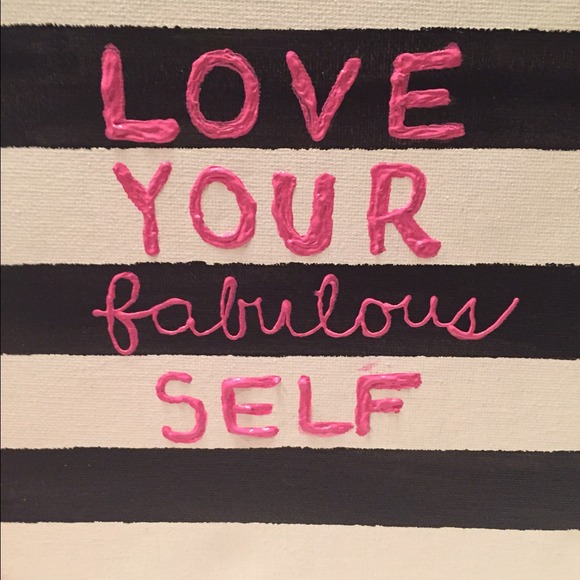 LOVE
YOUR
fabulous
SELF